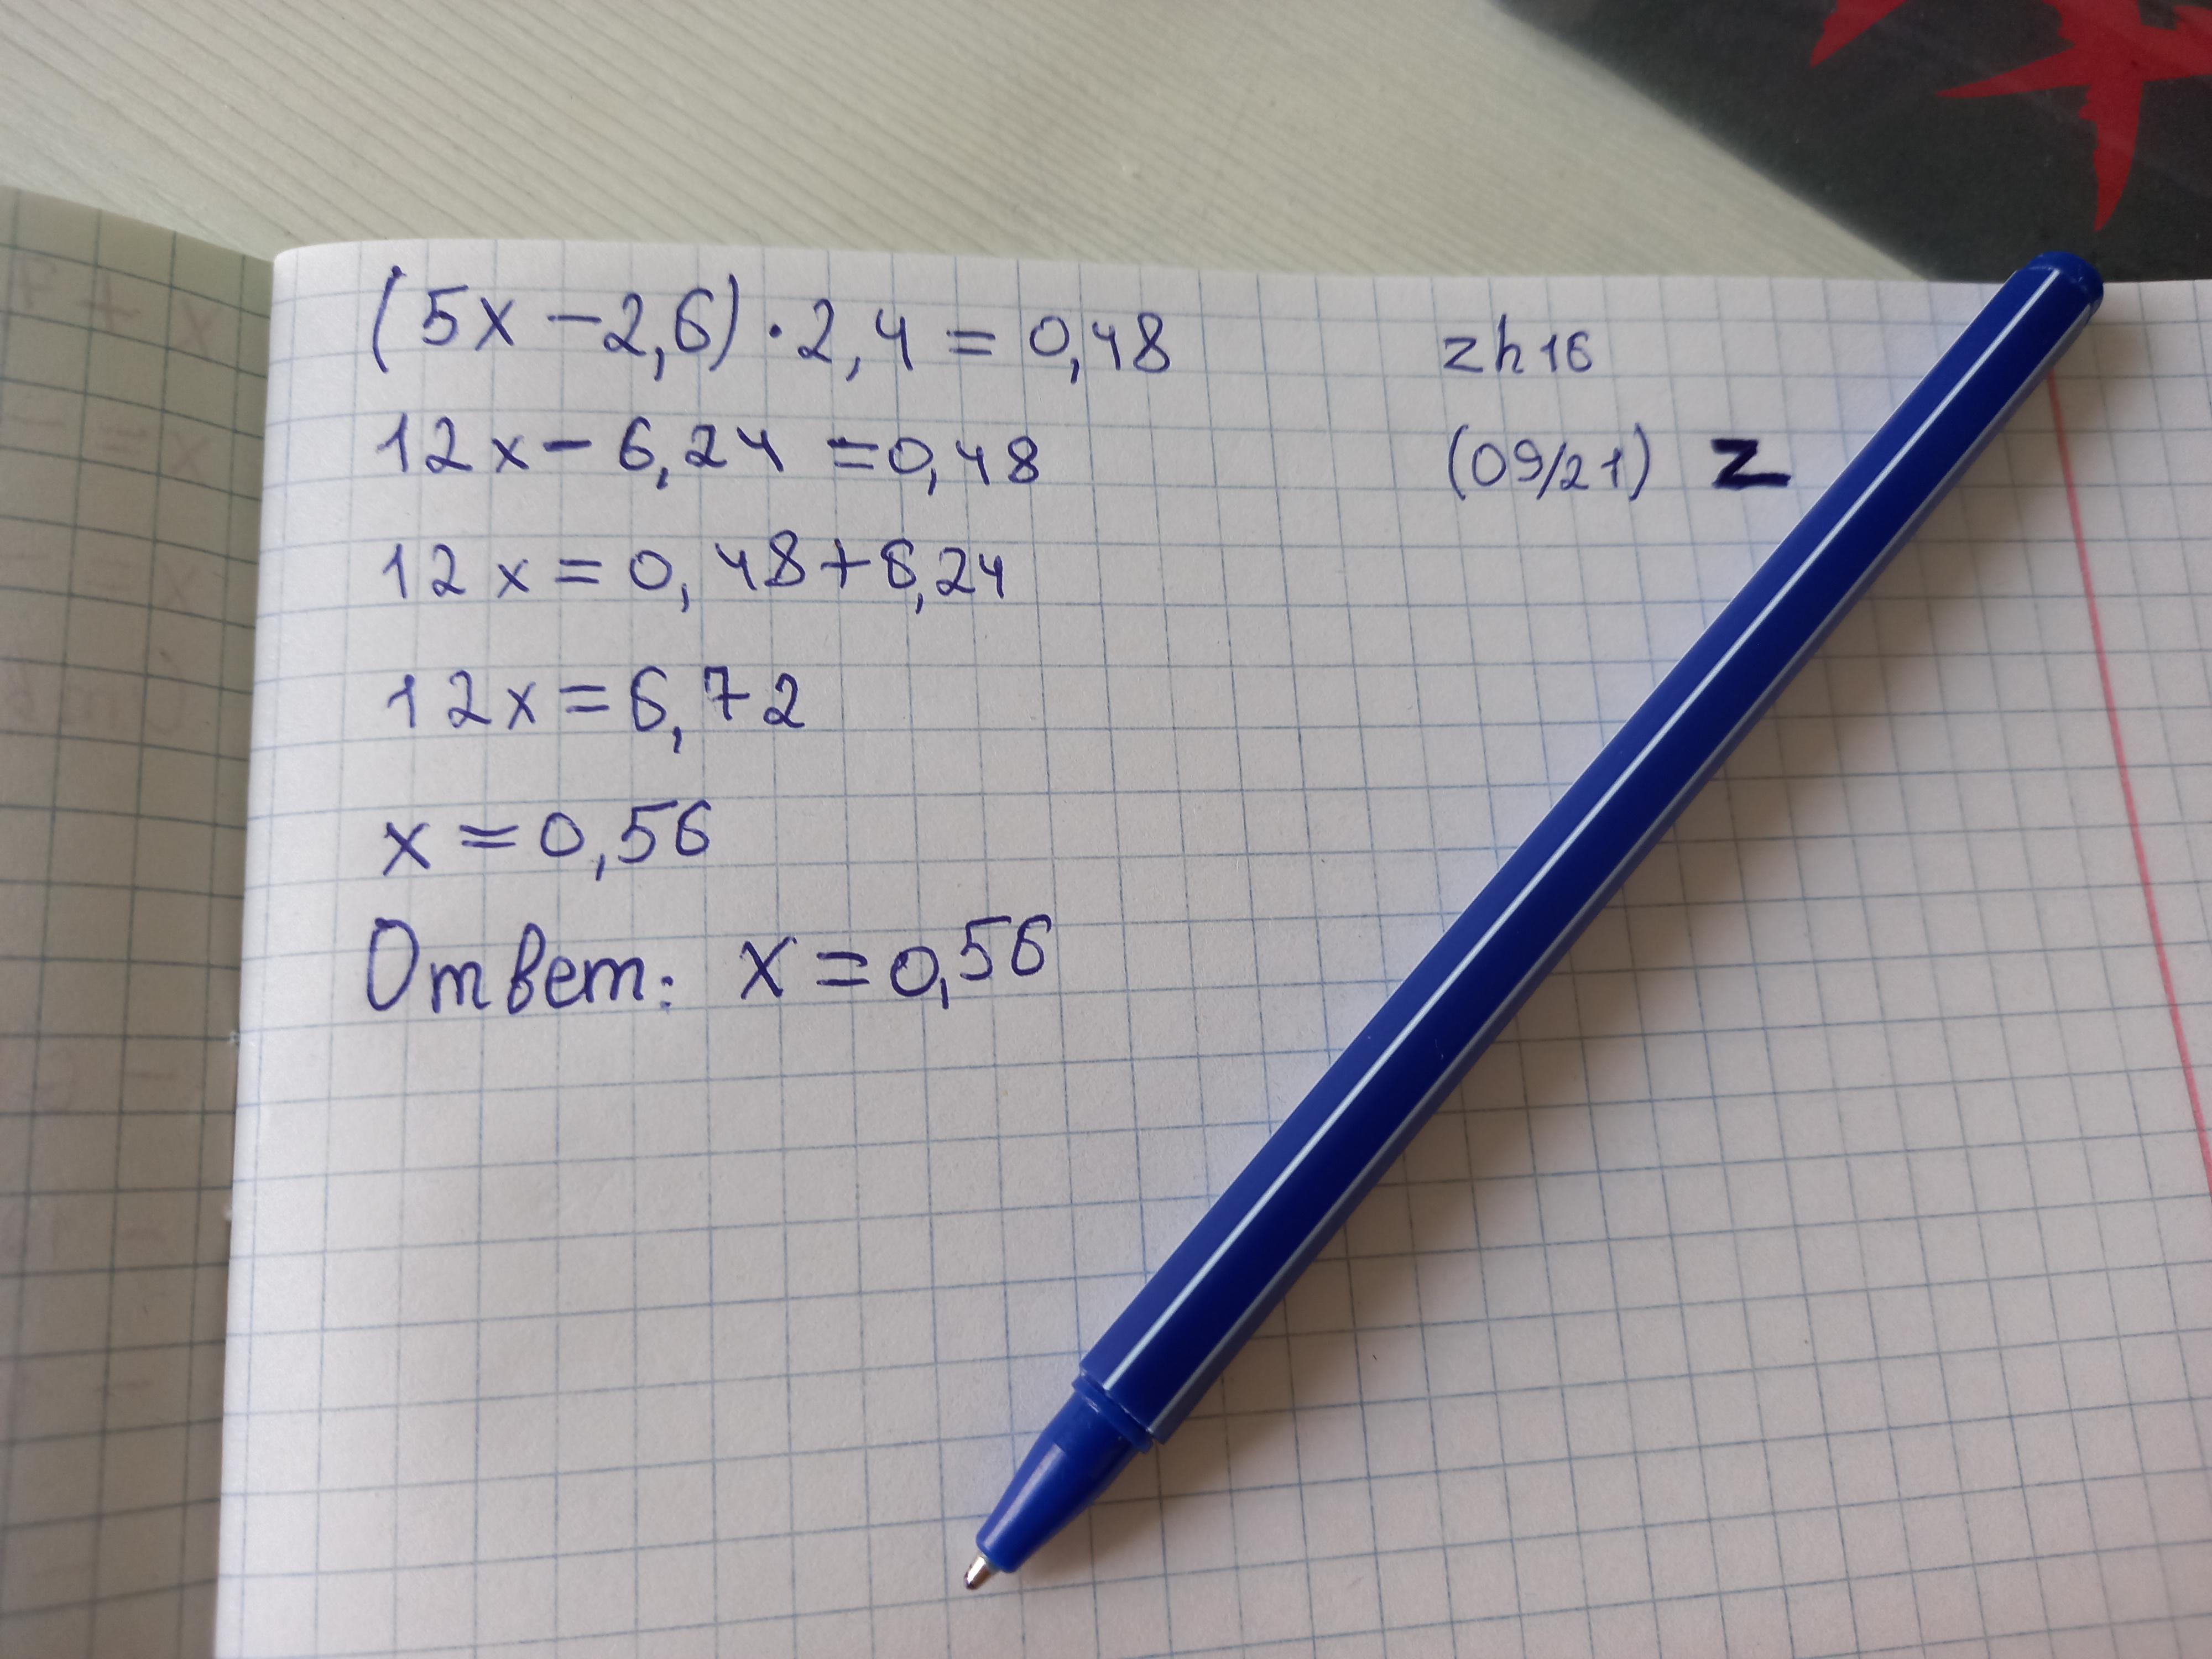 (5x - 2,6) · 2,4 = 0,48
12x - 6,24 = 0,48
12x = 0,48 + 6,24
12x = 6,72
x = 0,56
Ответ: x = 0,56
zh16
(09/21) z